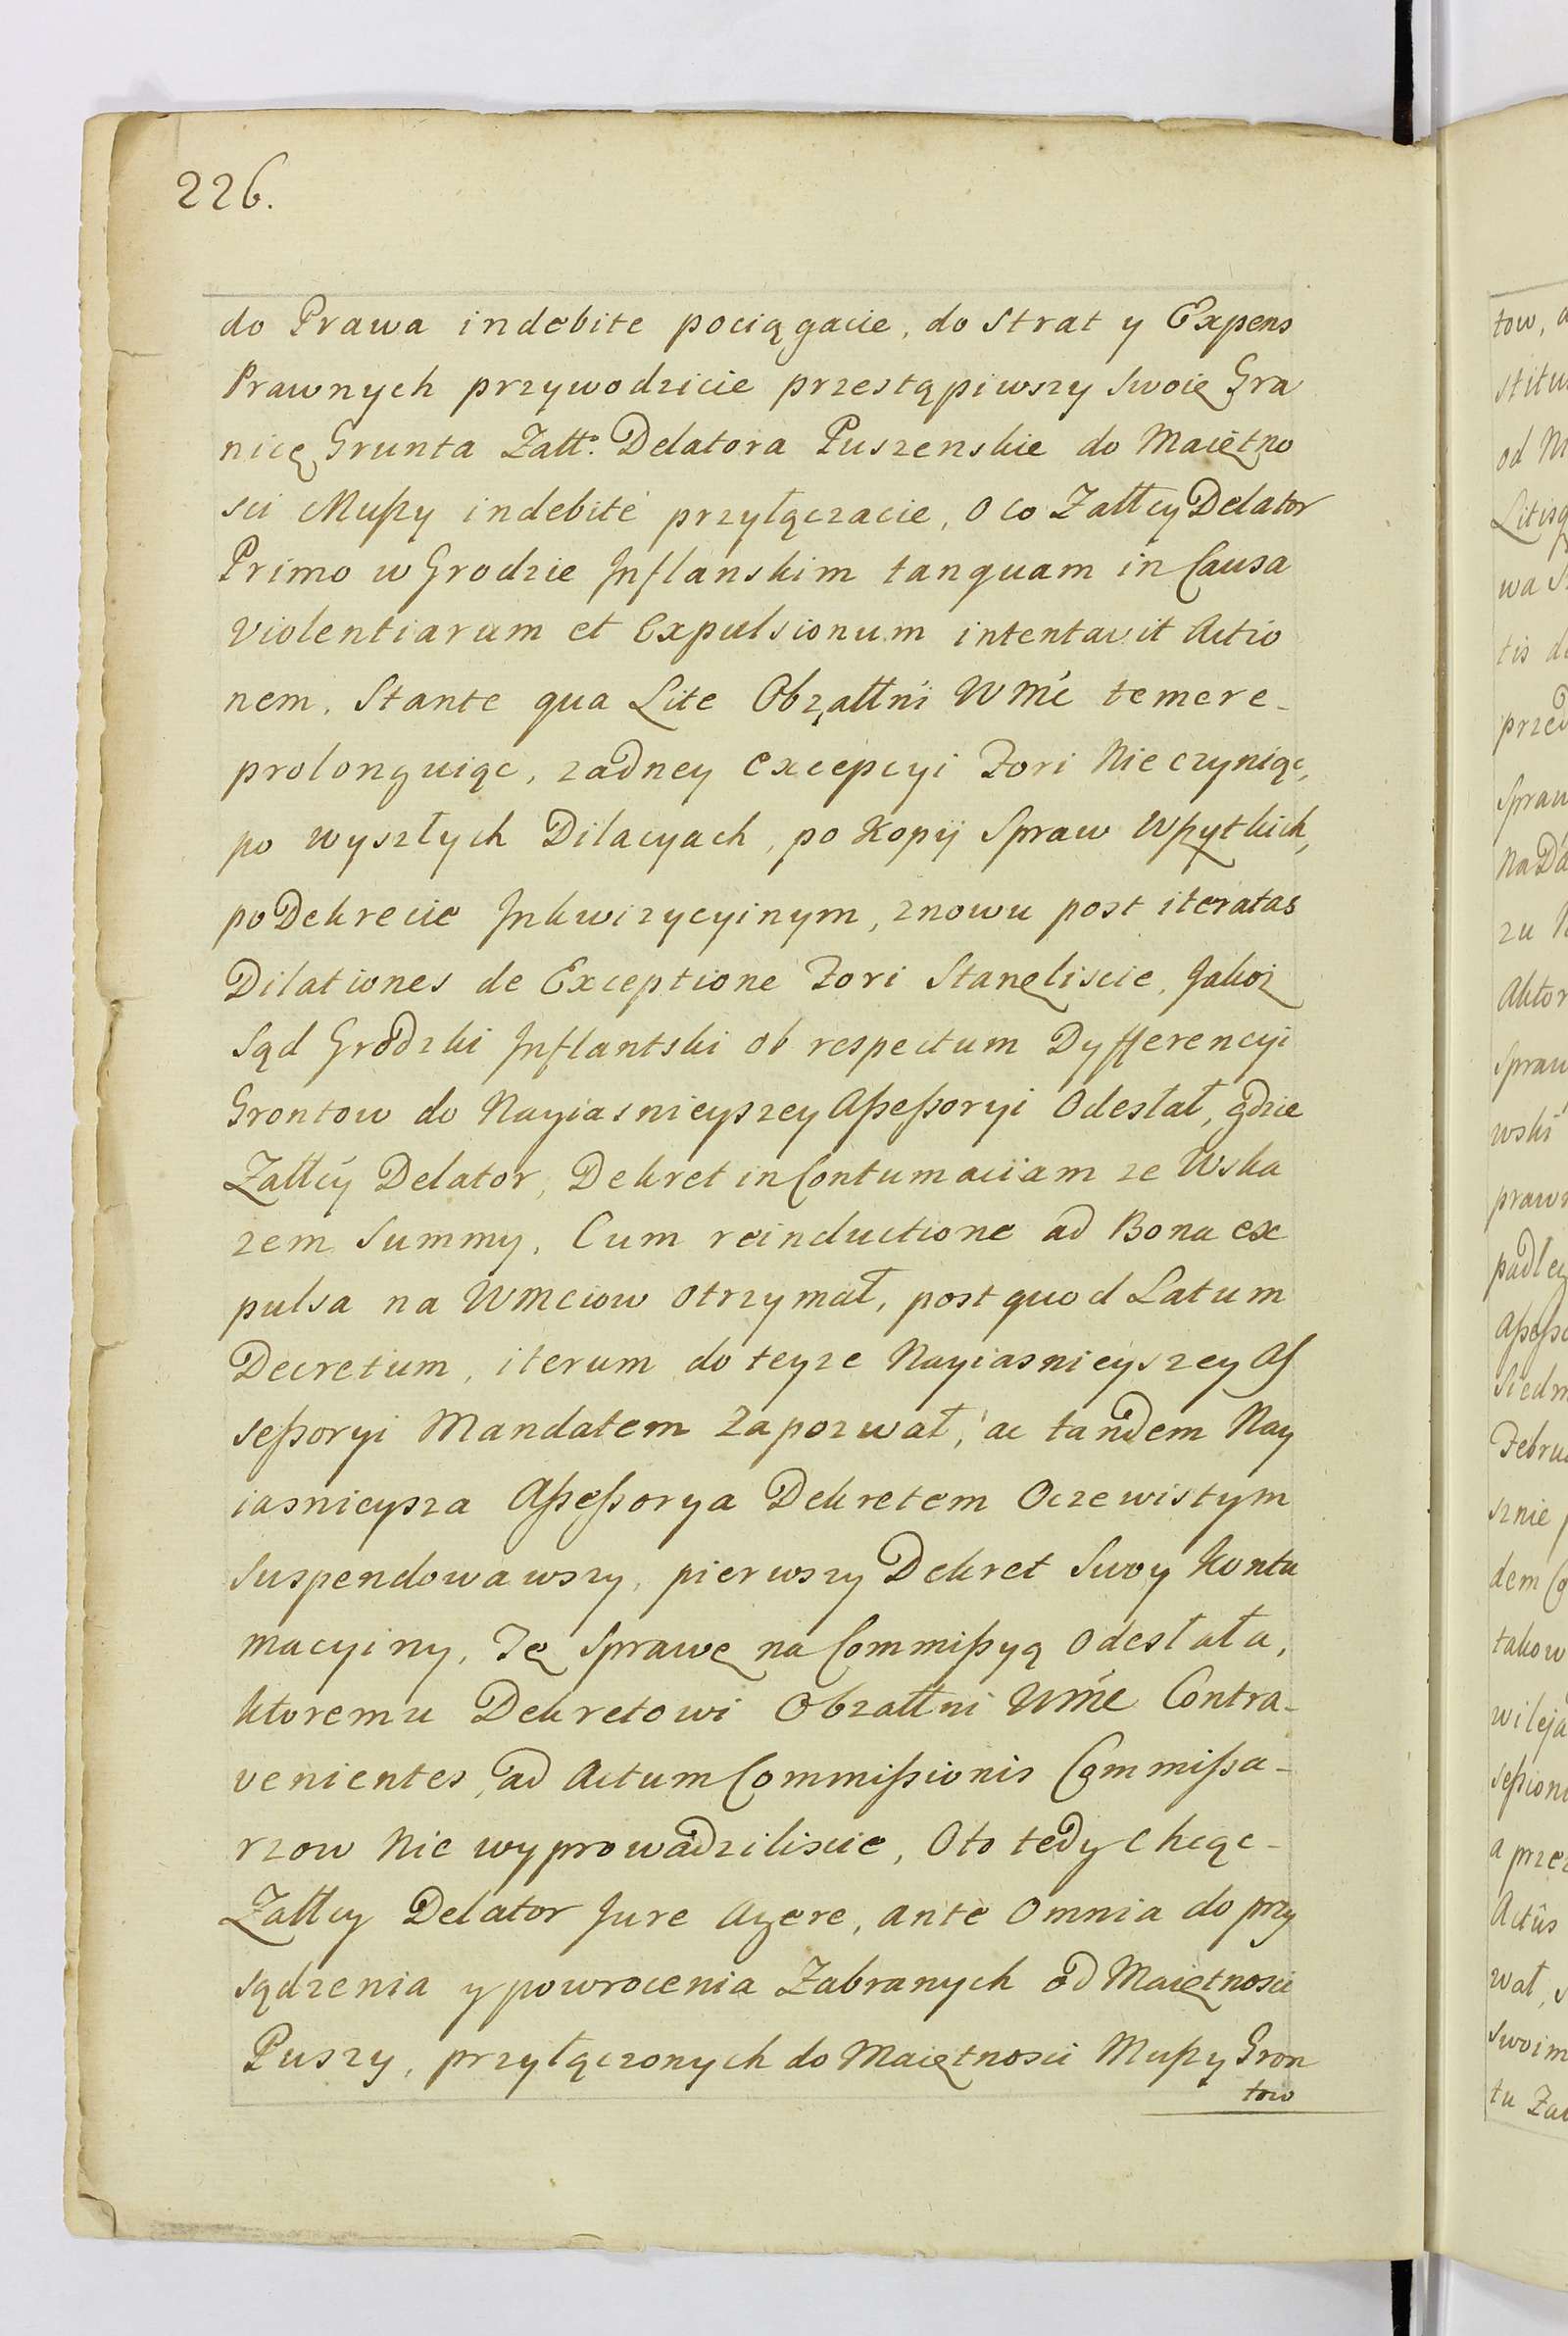 226.
do Prawa indebite pociągacie, do Strat y Expens
Prawnych przywodzicie przestąpiwszy Swoię Gra
nicę Grunta Załł. Delatora Puszenskie do Maiętno
sci Mußy indebité przyłączacie, o co Załłcy Delator
Primo w Grodzie Inflanskim tanquam in Causa
Violentiarum et Expulsionum intentavit Actio
nem. Stante qua Lite Obżałłni WMć temere
prolonguiąc, zadney Excepcyi Fori Nie czyniąc,
po wyszłych Dilacyach, po Kopij Spraw Wßytkich,
po Dekrecie Inkwizycyinym, znowu post iteratas
Dilationes de Exceptione Fori Stanęliscie, Jakoż
Sąd Grodzki Inflantski ob respectum Dyfferencyi
Grontow do Nayiasnieyszey Aßeßoryi Odesłał, gdzie
Załłcy Delator, Dekret in Contumaciam ze Wska
zem Summy, Cum reinductione ad Bona ex
pulsa na WMciow otrzymał, post quod Latum
Decretum, iterum do teyze Nayiasnieyszey As
seßoryi Mandatem Zapozwał, ac tandem Nay
iasnieysza Aßeßorya Dekretem Oczewistym
Suspendowawszy, pierwszy Dekret Swoy Kontu
macyiny, Tę Sprawę na Commißyą Odesłała,
ktoremu Dekretowi Obzałłni WMć Contra-
venientes, ad Actum Commißionis Commißa-
rzow Nie wyprowadziliscie, Oto tedy Chcąc-
Załłcy Delator Jure Agere, ante Omnia do przy
sądzenia y powrocenia Zabranych od Maiętnosci
Puszy, przyłączonych do Maiętnosci Mußy Gron
tow